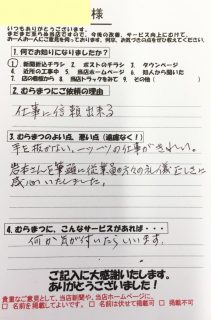 様
いつもありがとうございます。
まだまだ至らぬ当店ですので、今後の改善、サービス向上にむけて、
お一人お一人にご意見を伺っております。何卒、お気づきの点をぜひ教えてください。
1. 何でお知りになりましたか?
1. 新聞折込チラシ 2. ポストのチラシ 3. タウンページ
4. 近所の工事中 5. 当店ホームページ 6. 知人から聞いた
7. 店の看板から 8. 当店トラックをみて 9. その他(
2. むらまさにご依頼の理由
仕事に信頼出来る
3. むらまさのよい点、悪い点(遠慮なく!)
手を抜かない、一ツ一ツの仕事がきれい。
岩本さんを筆頭に従業員の方々の礼儀正しさに
感心いたしました。
4. むらまさに、こんなサービスがあれば・・・
何か気が付いたらいいます。
ご記入に大感謝いたします。
ありがとうございました!
貴重なご意見として、当店新聞や、当店ホームページに、
□ 名前を掲載してよいです。 □ 名前は伏せて掲載可 □ 掲載不可